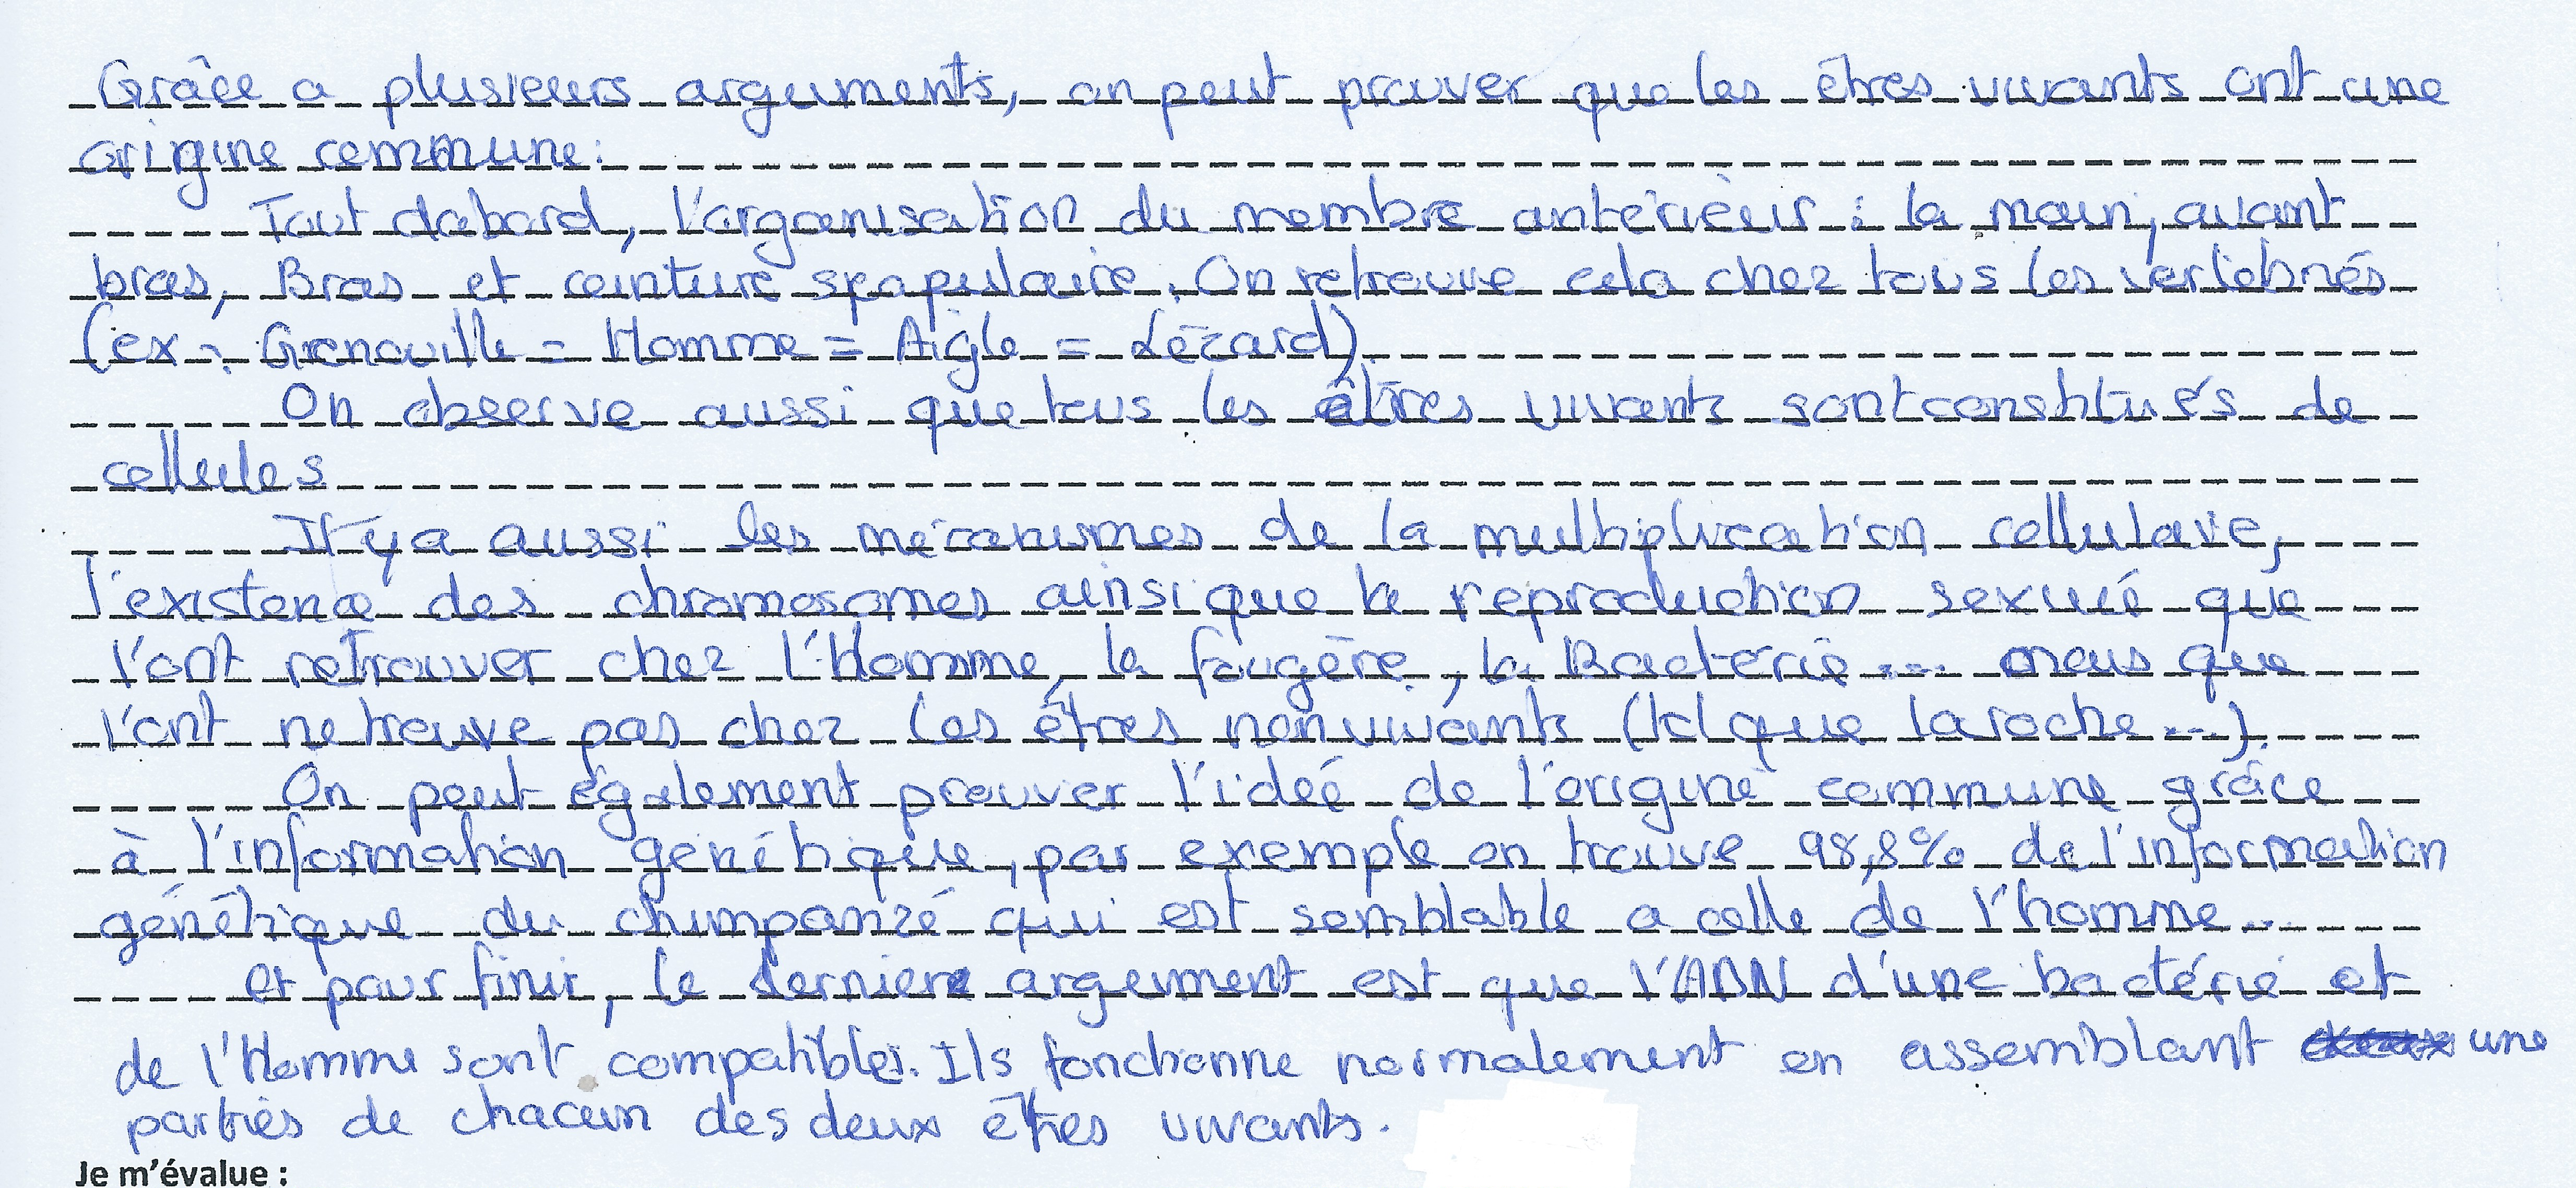 Grâce a plusieurs arguments, on peut prouver que les êtres vivants ont une
origine commune:
Tout dabord, l'organisation du membre antérieur : la main, avant
bras, Bras et ceinture spapulaire. On retrouve cela chez tous les vertébrés
(ex : Grenouille = Homme = Aigle = Lézard).
On observe aussi que tous les êtres vivants sont constitués de
cellules
Il y a aussi les mécanismes de la multiplication cellulaire,
l'existence des chromosomes ainsi que la reproduction sexué que
l'ont retrouver chez l'Homme, la fougère, la Bactérie... mais que
l'ont ne trouve pas chez les êtres non vivants (tel que la roche...).
On peut également prouver l'idée de l'origine commune grâce
à l'information génétique, par exemple on trouve 98,8% de l'information
génétique du chimpanzé qui est semblable a celle de l'homme...
et pour finir, le dernier argument est que l'ADN d'une bactérie et
de l'Homme sont compatibles. Ils fonctionne normalement en assemblant une
parties de chacun des deux êtres vivants.
Je m'évalue :